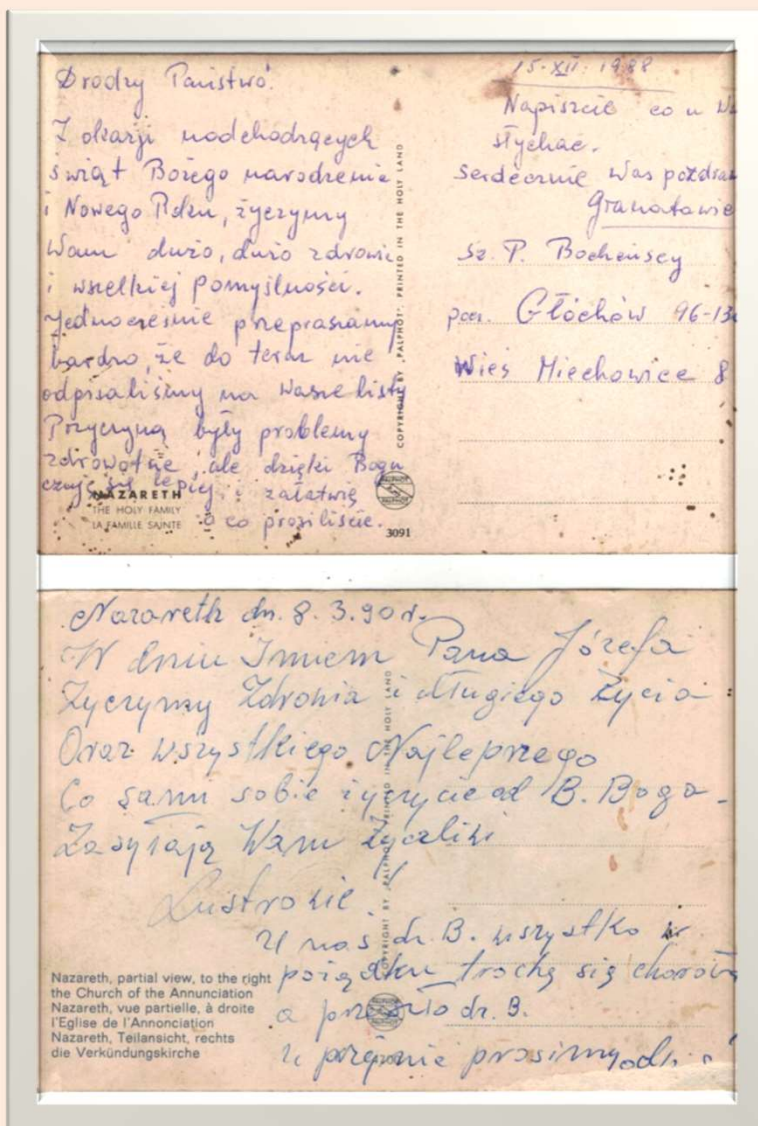 Drodzy Państwo!
Z okazji nadchodzących
świąt Bożego narodzenia
i Nowego Roku, życzymy
Wam dużo, dużo zdrowia
i wszelkiej pomyślności.
Jednocześnie przepraszamy
bardzo, że do teraz nie
odpisaliśmy na Wasze listy
Przyczyną były problemy
zdrowotne, ale dzięki Bogu
czuję się lepiej i załatwię
o co prosiliście.
NAZARETH
THE HOLY FAMILY
LA FAMILLE SAINTE
COPYRIGHT BY "PALPHOT", PRINTED IN THE HOLY LAND
PALPHOT
3091
15-XII-1988
Napiszcie co u
słychać.
Serdecznie Was
Granatowie
Sz. P. Bocheńscy
pocz. Głuchów 96-13
Wieś Miechowice 8
Nazareth dn. 8.3.90r.
W dniu Imiem Pana Józefa
Życzymy Zdrowia i długiego Życia
Oraz wszystkiego Najlepszego
Co sami sobie życzycie od B. Boga -
Zasyłają Wam Życzliwi
U nas dz. B. wszystko w
porządku trochę się
a przeszło dz. B.
Uprzejmie prosimy
COPYRIGHT BY "PALPHOT" PRINTED IN THE HOLY LAND
Nazareth, partial view, to the right
the Church of the Annunciation
Nazareth, vue partielle, à droite
l'Eglise de l'Annonciation
Nazareth, Teilansicht, rechts
die Verkündungskirche